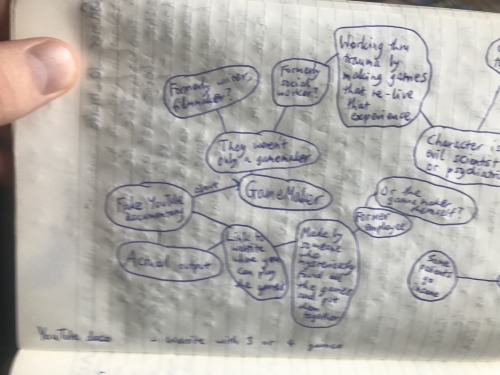 Working thru
trauma by
making games
that re-live
that
experience
Formerly writer,
filmmaker?
Formerly
social
worker?
They weren't
only a gamemaker
Character is
evil scientist
or psychiatrist
Fake YouTube
documentary
about
GameMaker
Or the
game maker
themself?
Former
employee
Actual output
Link to
website
where you
can play
the games
Made by
someone
who
mysteriously
found all
the games
and put
them
together
Some
patients
go
insane
YouTube docs
- website with 3 or 4 games